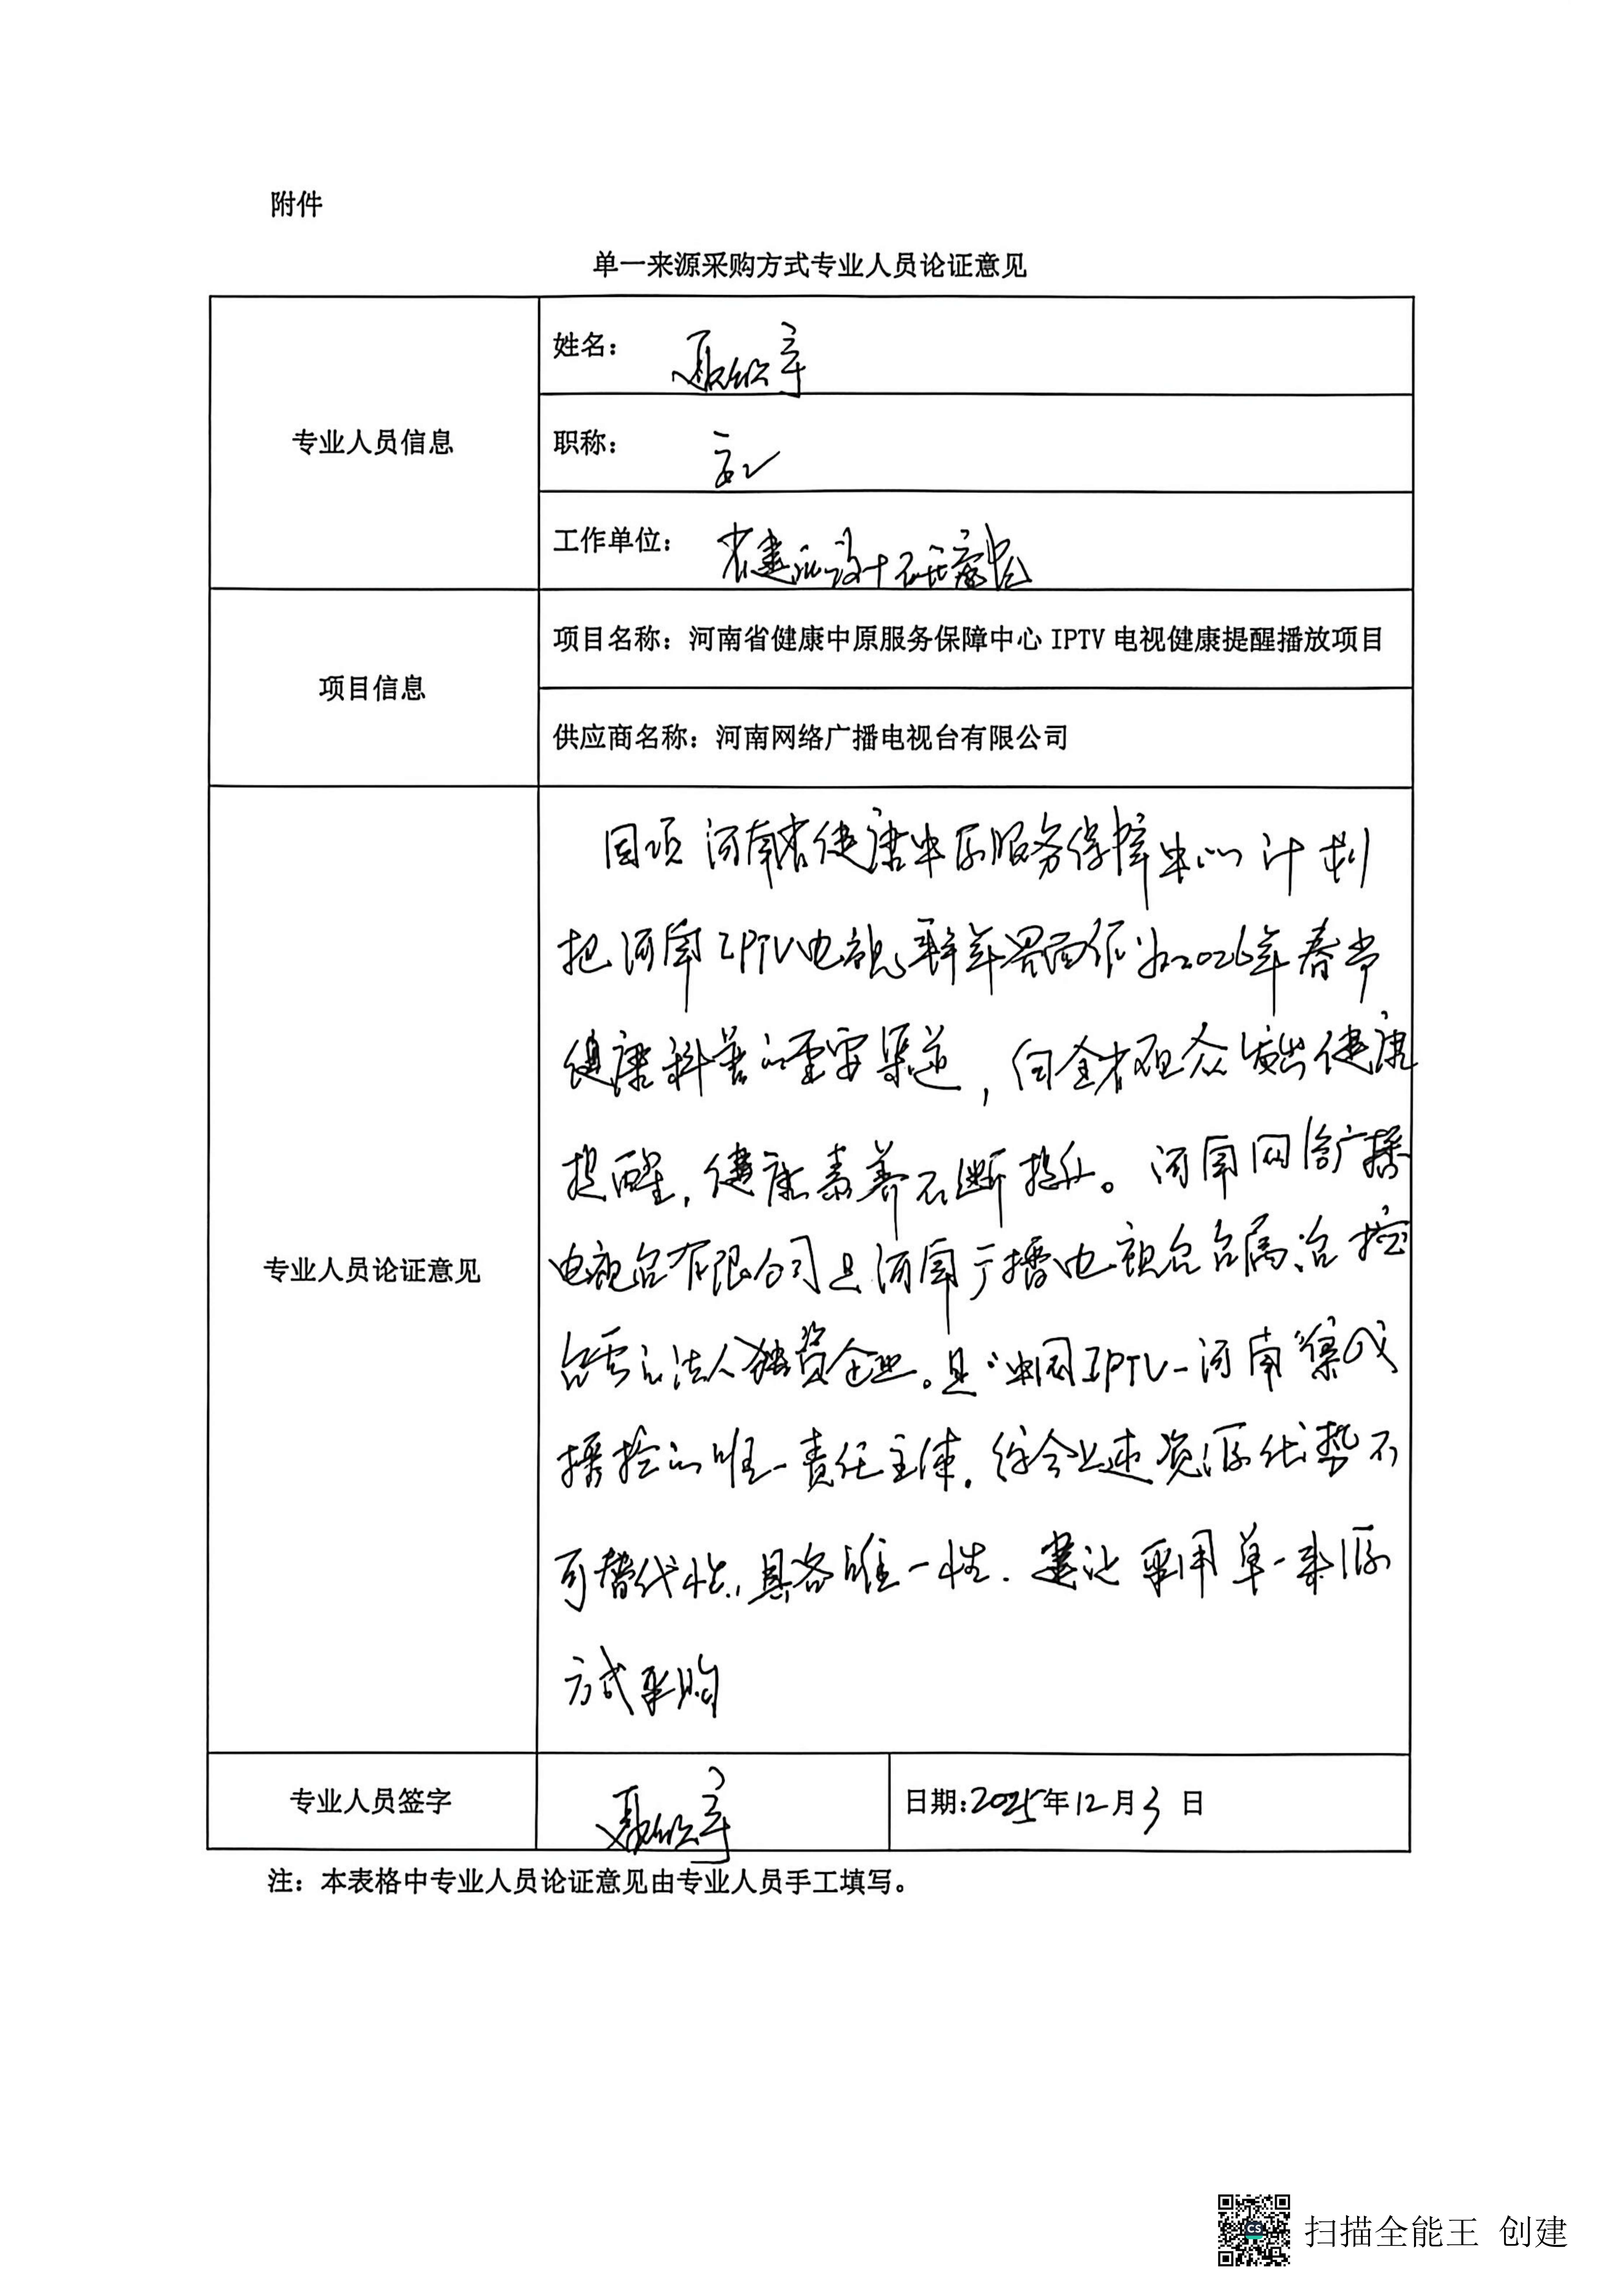 附件
单一来源采购方式专业人员论证意见
专业人员信息
姓名：
职称：高工
工作单位：省建筑设计研究院
项目信息
项目名称：河南省健康中原服务保障中心 IPTV 电视健康提醒播放项目
供应商名称：河南网络广播电视台有限公司
专业人员论证意见
河南省健康中原服务保障中心计划
把河南IPTV电视界面作为2026年春节
健康科普的重要渠道，向全省观众发出健康
提醒，健康素养不断提升。河南网络广播
电视台有限公司是河南广播电视台台属、台控
法人独资企业。是“中国IPTV-河南”集成
播控的唯一责任主体．综合上述资源优势不
可替代性，具备唯一性．建议采用单一来源
方式采购
专业人员签字
日期：2025年12月3日
注：本表格中专业人员论证意见由专业人员手工填写。
扫描全能王 创建